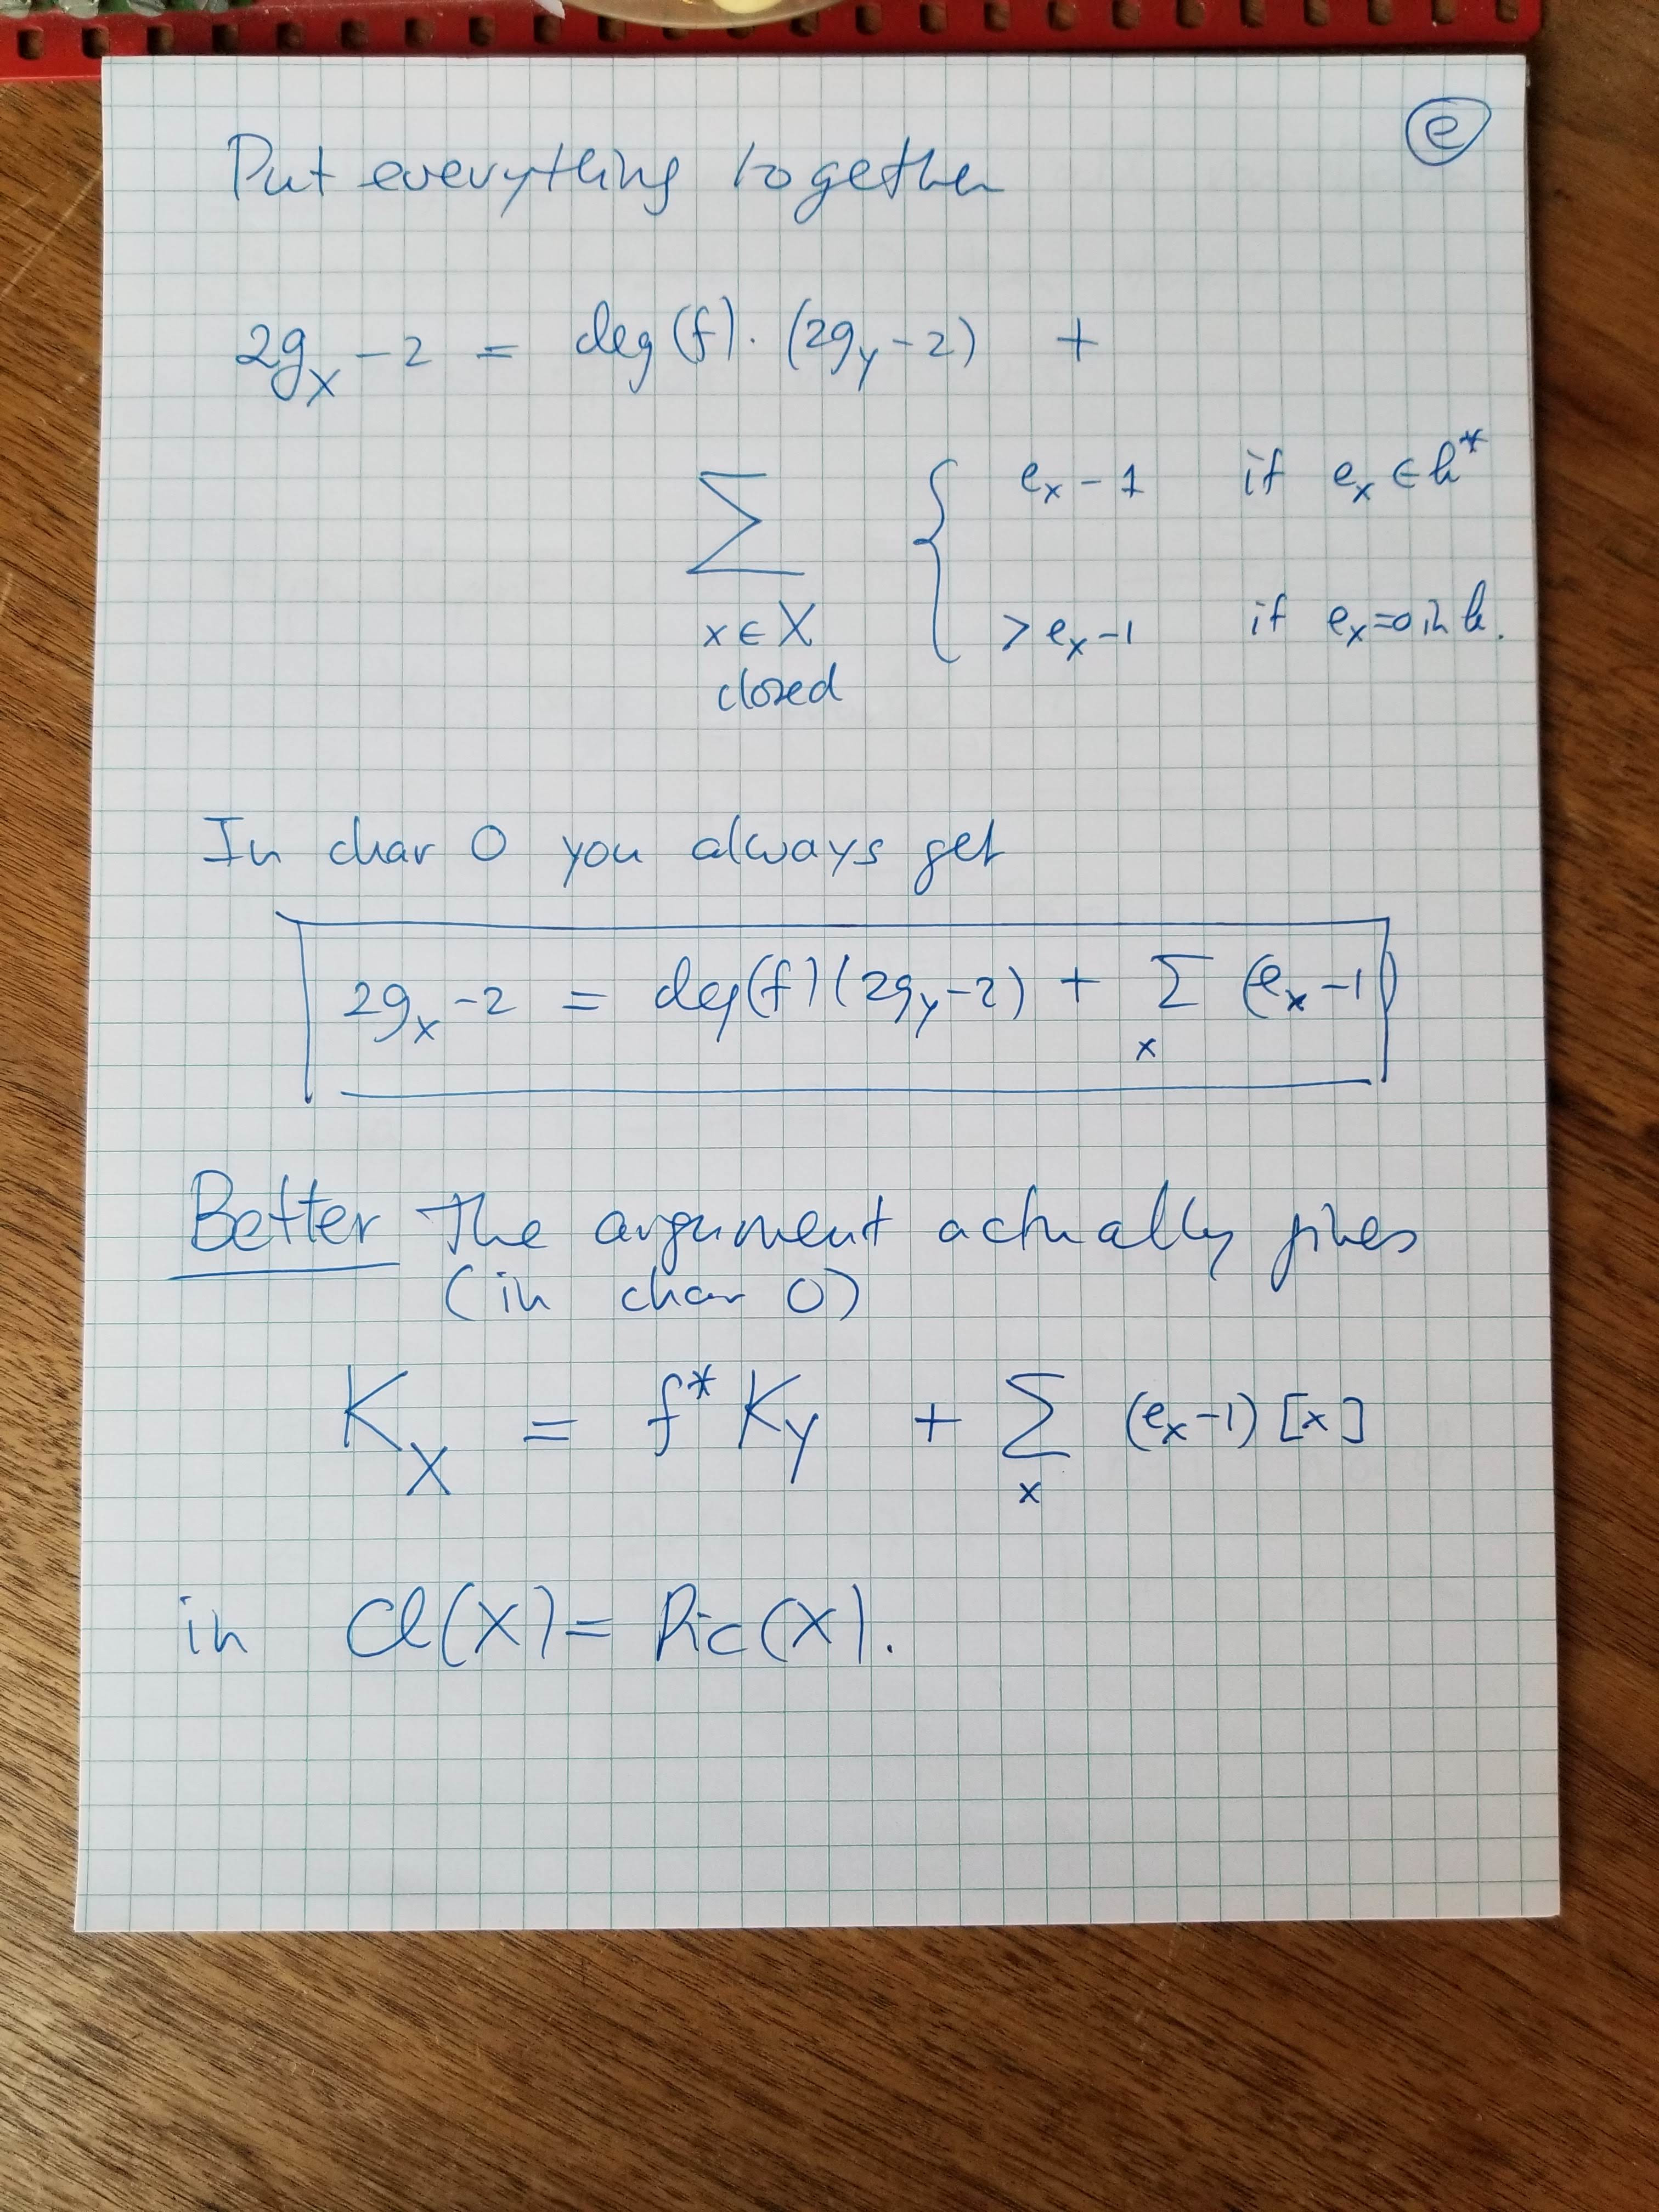 ⓔ
Put everything together
2g_X − 2 = deg(f) · (2g_Y − 2) +
∑ { e_x − 1 if e_x ∈ k*
x ∈ X > e_x − 1 if e_x = 0 in k.
closed
In char 0 you always get
2g_X − 2 = deg(f)(2g_Y − 2) + ∑ (e_x − 1)
x
Better The argument actually gives
(in char 0)
K_X = f* K_Y + ∑ (e_x − 1) [x]
x
in Cl(X) = Pic(X).